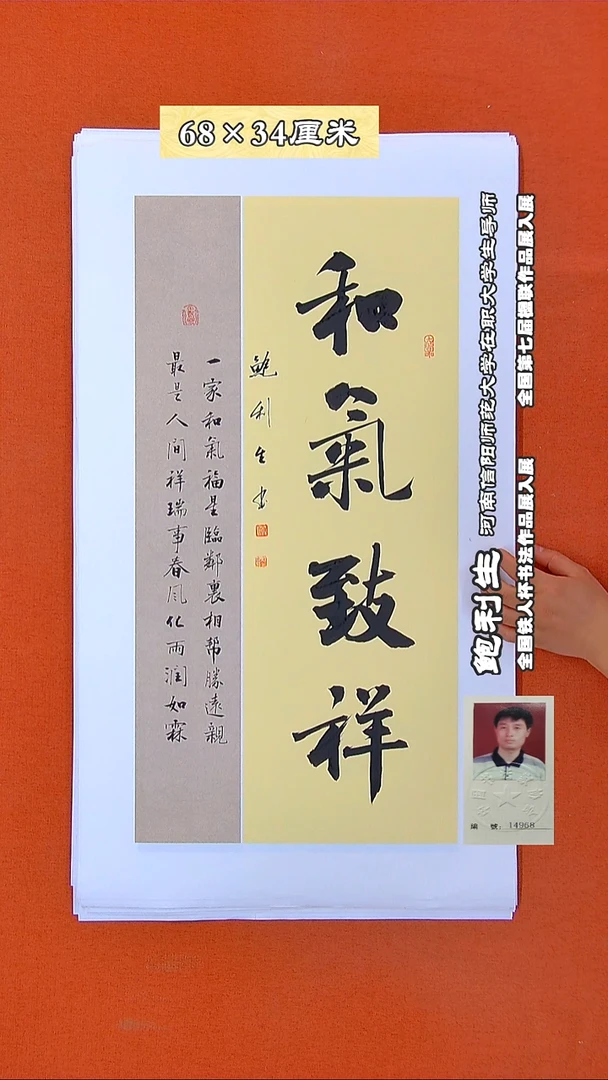 68×34厘米
和氣致祥
鲍利生书
一家和氣福星臨鄰裏相帮勝遠親
最是人间祥瑞事春风化雨润如霖
全国第七届楹联作品展入展
全国铁人杯书法作品展入展
河南信阳师范大学在职大学生导师
鲍利生
編 號：14968